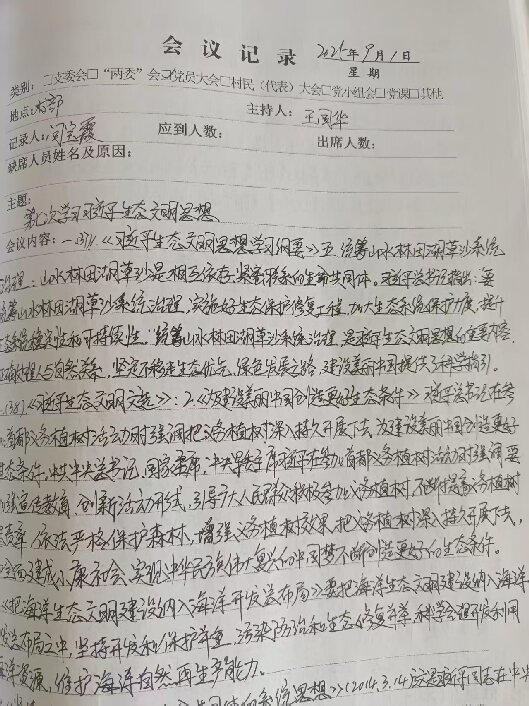 会议记录 2025年9月1日
星期
类别：□支委会□“两委”会□党员大会□村民（代表）大会□党小组会□党课□其他
地点：村部 主持人：王国华
记录人：闫宝霞 应到人数： 出席人数：
缺席人员姓名及原因：
主题：
第七次学习习近平生态文明思想
会议内容：一、学习《习近平生态文明思想学习纲要》五、统筹山水林田湖草沙系统
治理：山水林田湖草沙是相互依存、紧密联系的生命共同体。习近平总书记指出：要
统筹山水林田湖草沙系统治理，实施好生态保护修复工程，加大生态系统保护力度，提升
态系统稳定性和可持续性。统筹山水林田湖草沙系统治理，是习近平生态文明思想的重要内容，
正确处理人与自然关系，坚定不移走生态优先、绿色发展之路，建设美丽中国提供了科学指引。
《习近平生态文明文选》：2.《为建设美丽中国创造更好生态条件》习近平总书记在参
首都义务植树活动时强调把义务植树深入持久开展下去，为建设美丽中国创造更好
生态条件。中共中央总书记、国家主席、中央军委主席习近平在参加首都义务植树活动时强调要
加强宣传教育，创新活动形式，引导广大人民群众积极参加义务植树，不断提高义务植树
尽责率，依法严格保护森林，增强义务植树效果，把义务植树深入持久开展下去，
全面建成小康社会、实现中华民族伟大复兴的中国梦不断创造更好的生态条件。
《把海洋生态文明建设纳入海洋开发总布局》要把海洋生态文明建设纳入海洋
发总布局之中，坚持开发和保护并重、污染防治和生态修复并举，科学合理开发利用
海洋资源，维护海洋自然再生产能力。
系统思想》（2014.3.14）这是习近平同志在中央